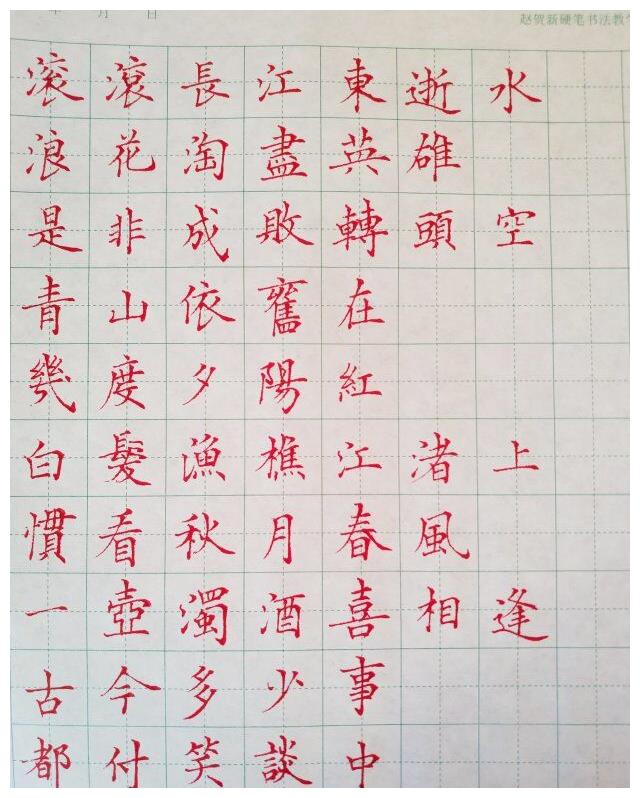 年 月 日
赵贺新硬笔书法教
滚滾長江東逝水
浪花淘盡英雄
是非成敗轉頭空
青山依舊在
幾度夕陽紅
白髮漁樵江渚上
慣看秋月春風
一壺濁酒喜相逢
古今多少事
都付笑談中